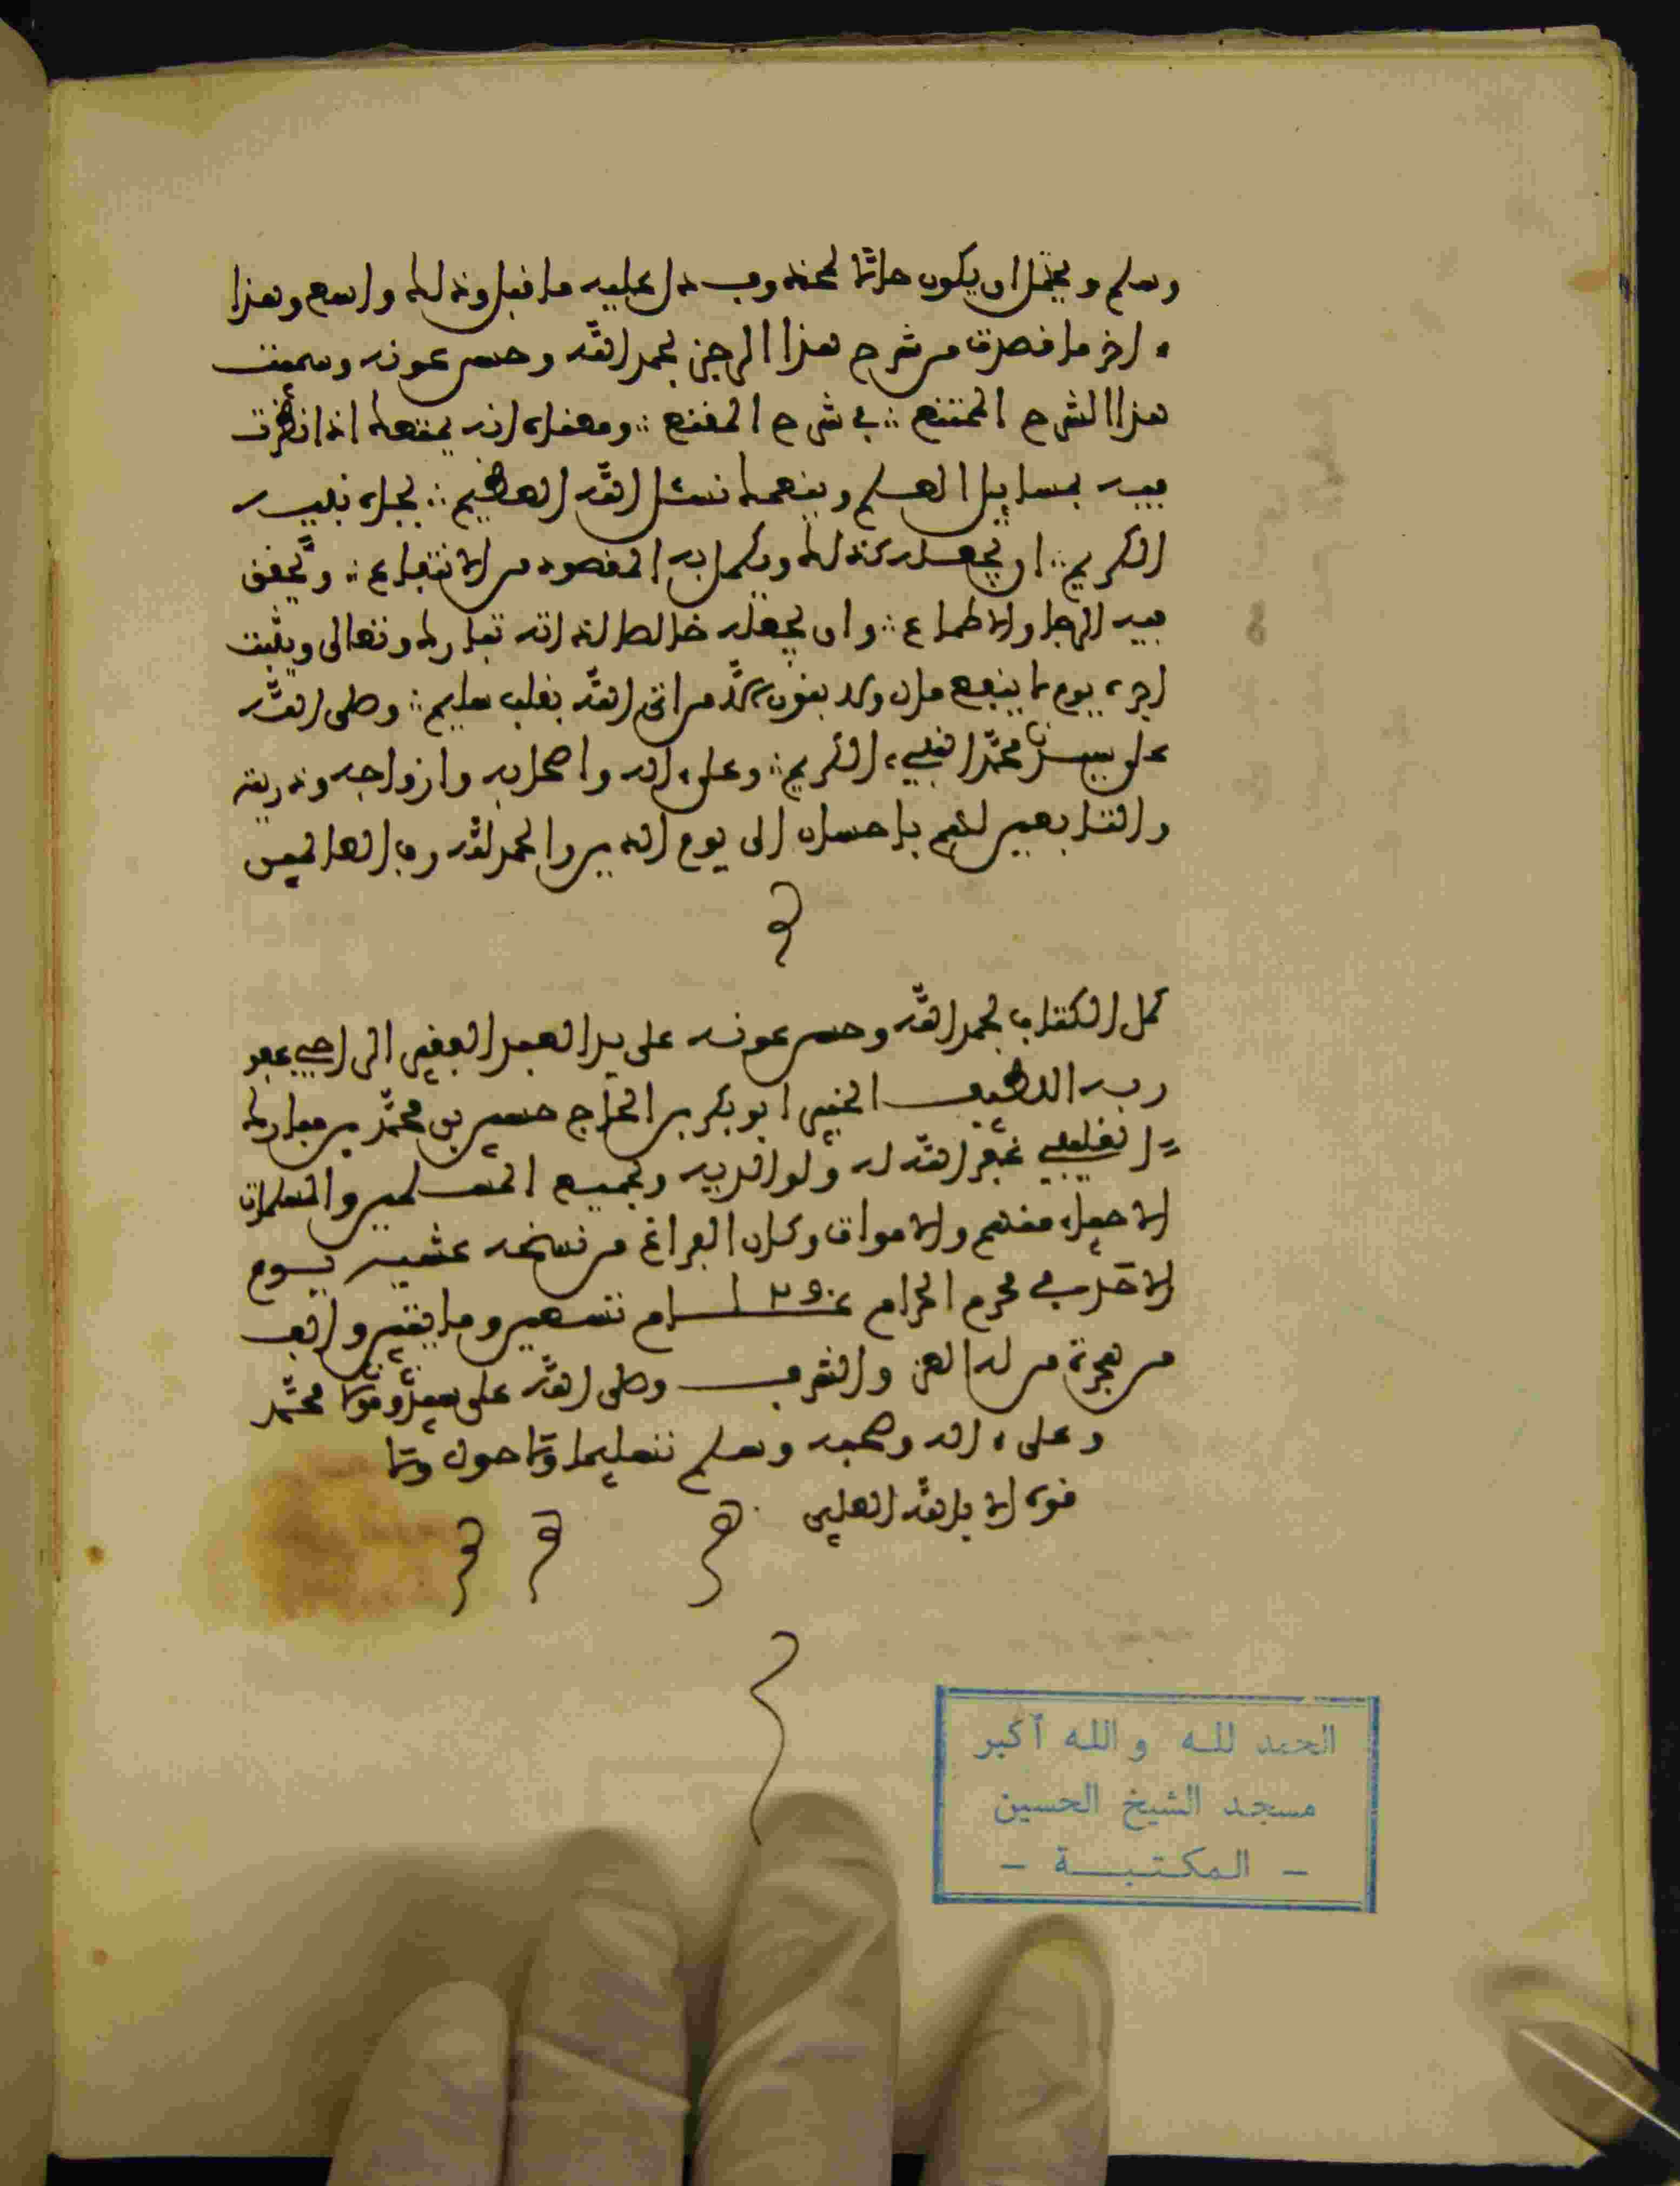 وسلم ويحتمل ان يكون حالا لمحذوف دل عليه ما قبل وذلك واسع وهذا
ءاخر ما قصدت من شرح هذا الرجز بحمد الله وحسن عونه وسميت
هذا الشرح الممتع في شرح المقنع ومعناه انه يمتعك اذا نظرت
فيه بمسايل العلم وينفعك نسئل الله العظيم بجاه نبيه
الكريم ان يجعله كذلك ويكمل به المقصود من الانتفاع ويحقق
فيه الرجا والاطماع وان يجعله خالصا لذاته تبارك وتعالى ويثبت
اجره يوم لا ينفع مال ولا بنون الا من اتى الله بقلب سليم وصلى الله
على سيدنا محمد النبيء الكريم وعلى ءاله واصحابه وازواجه وذريته
والتابعين لهم باحسان الى يوم الدين والحمد لله رب العالمين
كمل الكتاب بحمد الله وحسن عونه على يد العبد الفقير الراجي عفو
ربه اللطيف الخبير ابو بكر بن الحاج حسين بن محمد بن مبارك
غفر الله له ولوالديه ولجميع المسلمين والمسلمات
الاحياء منهم والاموات وكان الفراغ من نسخه عشية يوم
الاحد في محرم الحرام عام تسعين ومايتين والف
من هجرة من له العز والشرف وصلى الله على سيدنا ومولانا محمد
وعلى ءاله وصحبه وسلم تسليما ولا حول ولا
قوة الا بالله العلي
الحمد لله والله أكبر
مسجد الشيخ الحسين
- المكتبة -